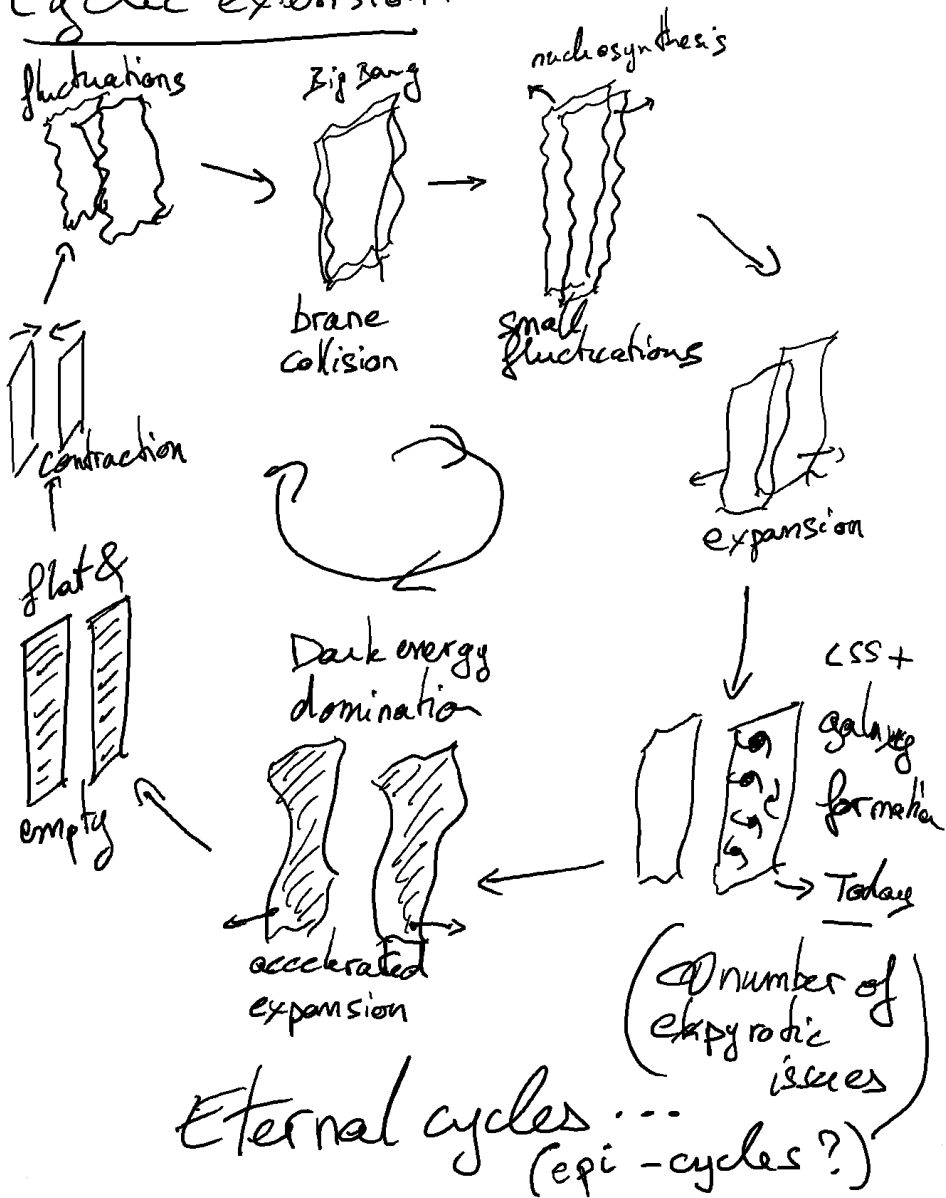 Cyclic expansion
fluctuations
Big Bang
nucleosynthesis
brane
collision
small
fluctuations
contraction
expansion
flat &
empty
Dark energy
domination
accelerated
expansion
LSS +
galaxy
formation
Today
number of
ekpyrotic
issues
Eternal cycles ...
(epi-cycles?)